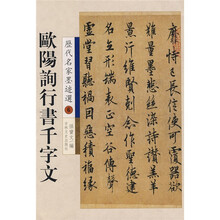 靡恃己長信使可覆器欲
難量墨悲絲染詩讚羔羊
景行維賢剋念作聖德建
名立形端表正空谷傳聲
虛堂習聽禍因惡積福緣
歷代名家墨迹選
歐陽詢行書千字文